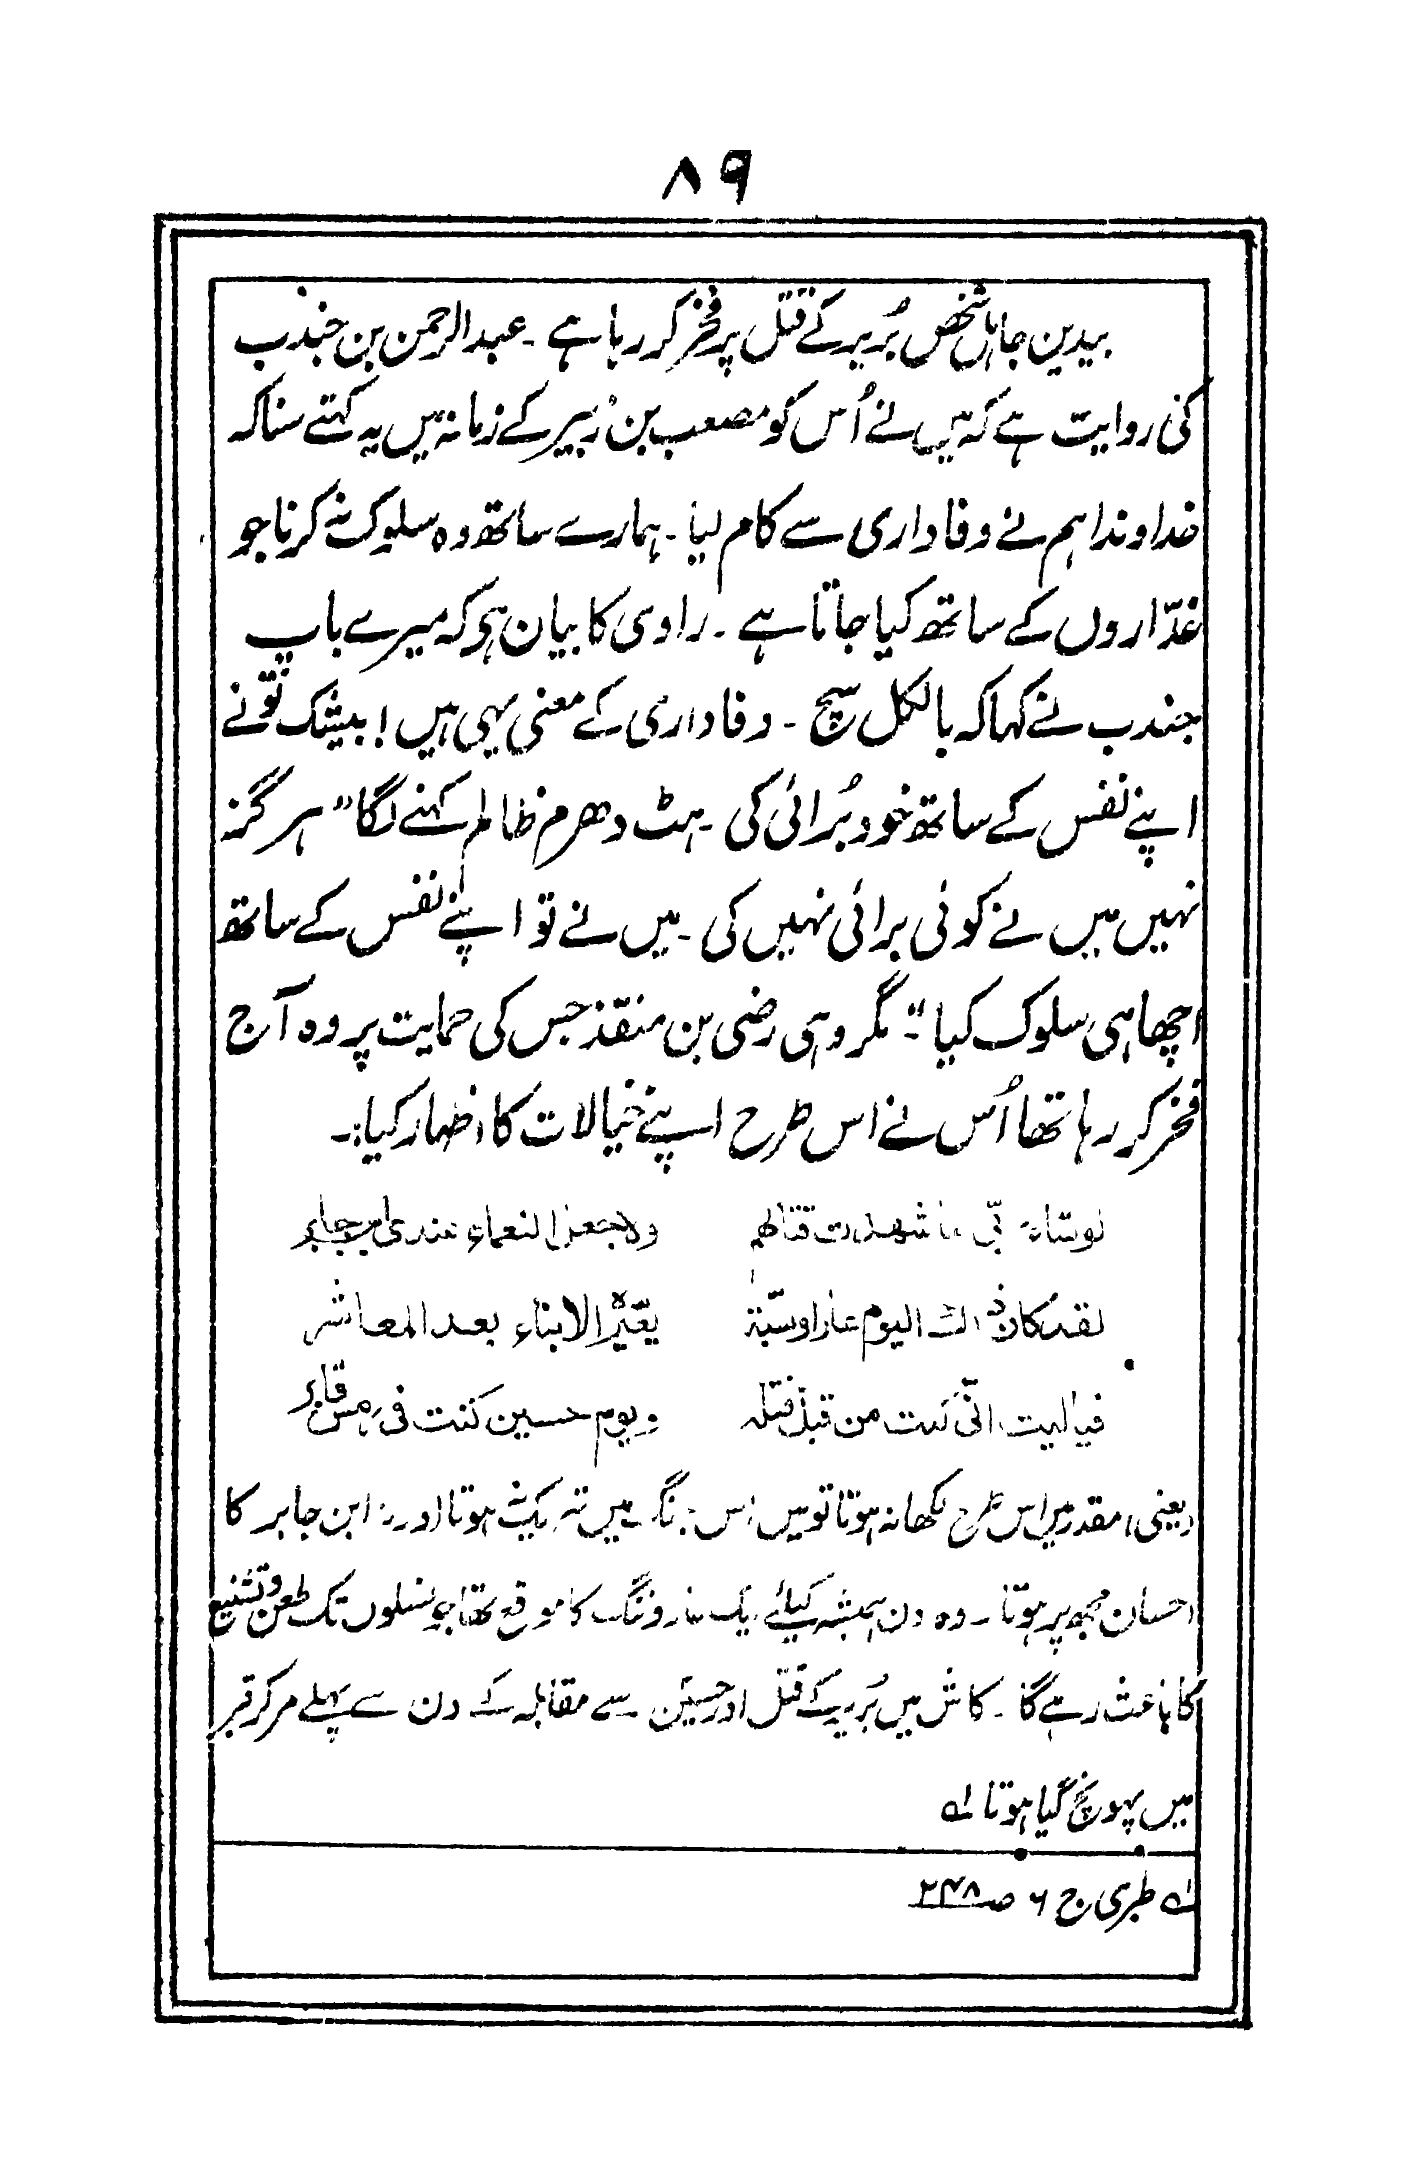 ۸۹
بیدین جاہل شخص بُریر کے قتل پر فخر کر رہا ہے ۔ عبدالرحمن بن جندب
کی روایت ہے کہ میں نے اُس کو مصعب بن زبیر کے زمانہ میں یہ کہتے سنا کہ
خداوندا ہم نے وفاداری سے کام لیا ۔ ہمارے ساتھ وہ سلوک نہ کرنا جو
غدّاروں کے ساتھ کیا جاتا ہے ۔ راوی کا بیان ہی کہ میرے باپ
جندب نے کہا کہ بالکل سچ ۔ وفاداری کے معنی یہی ہیں ! بیشک تو نے
اپنے نفس کے ساتھ خود بُرائی کی ۔ ہٹ دھرم ظالم کہنے لگا " ہر گز
نہیں میں نے کوئی برائی نہیں کی ۔ میں نے تو اپنے نفس کے ساتھ
اچھا ہی سلوک کیا " ۔ مگر وہی رضی بن منقذ جس کی حمایت پر وہ آج
فخر کر رہا تھا اُس نے اس طرح اپنے خیالات کا اظہار کیا :۔
لوشاء ربّی ما شهدت قتالهم ولا جعل النعماء عندی ابن جابر
لقد کان ذاك اليوم عارا وسبّة يعيّره الابناء بعد المعاشر
فياليت انّی كنت من قبل قتله ويوم حسين كنت فی رمس قابر
(یعنی) مقدر میں اس طرح لکھا نہ ہوتا تو میں اس جنگ میں شریک نہ ہوتا اور نہ ابن جابر کا
احسان مجھ پر ہوتا ۔ وہ دن ہمیشہ کیلئے ایک عار و ننگ کا موقع تھا جو نسلوں تک طعن و تشنیع
کا باعث رہے گا ۔ کاش میں بُریر کے قتل اور حسینؑ سے مقابلہ کے دن سے پہلے مر کر قبر
میں پہونچ گیا ہوتا لہ
لہ طبری ج ۶ صـ ۲۴۸